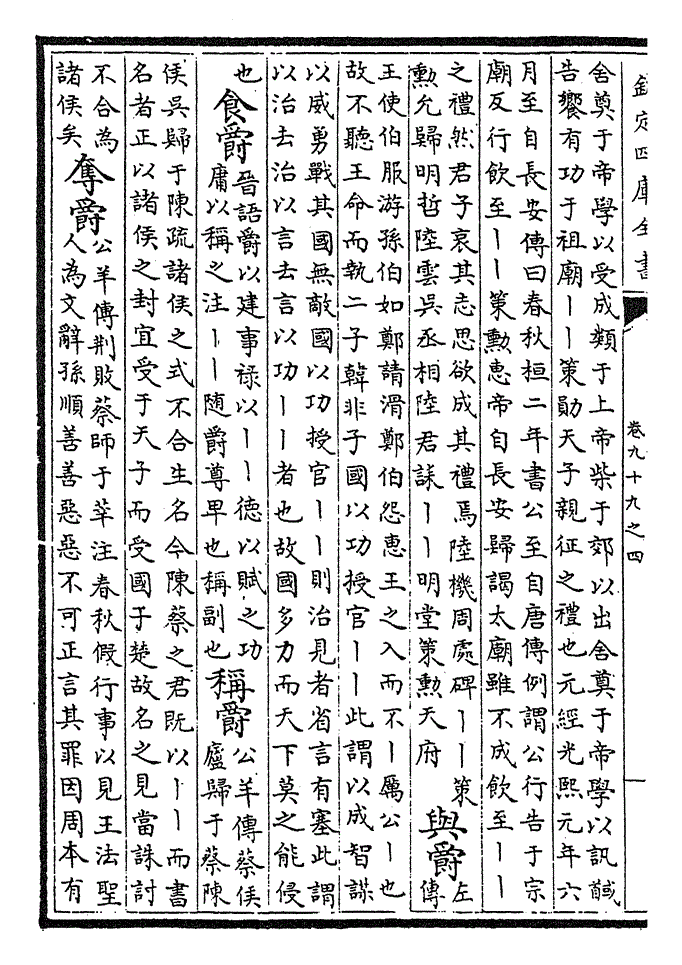 欽定四庫全書
卷九十九之四
舍奠于帝學以受成類于上帝柴于郊以出舍奠于帝學以訊馘
告饗有功于祖廟丨丨策勛天子親征之禮也元經光熙元年六
月至自長安傳曰春秋桓二年書公至自唐傳例謂公行告于宗
廟反行飲至丨丨策勲惠帝自長安歸謁太廟雖不成飲至丨丨
之禮然君子哀其志思欲成其禮焉陸機周處碑丨丨策
勲允歸明哲陸雲吳丞相陸君誄丨丨明堂策勲天府
與爵
左
傳
王使伯服游孫伯如鄭請滑鄭伯怨惠王之入而不丨厲公丨也
故不聽王命而執二子韓非子國以功授官丨丨此謂以成智謀
以威勇戰其國無敵國以功授官丨丨則治見者省言有塞此謂
以治去治以言去言以功丨丨者也故國多力而天下莫之能侵
也
食爵
晉語爵以建事祿以丨丨德以賦之功
庸以稱之注丨丨随爵尊卑也稱副也
稱爵
公羊傳蔡侯
廬歸于蔡陳
侯吳歸于陳疏諸侯之式不合生名今陳蔡之君既以丨丨而書
名者正以諸侯之封宜受于天子而受國于楚故名之見當誅討
不合為
諸侯矣
奪爵
公羊傳荆敗蔡師于莘注春秋假行事以見王法聖
人為文辭孫順善善惡惡不可正言其罪因周本有